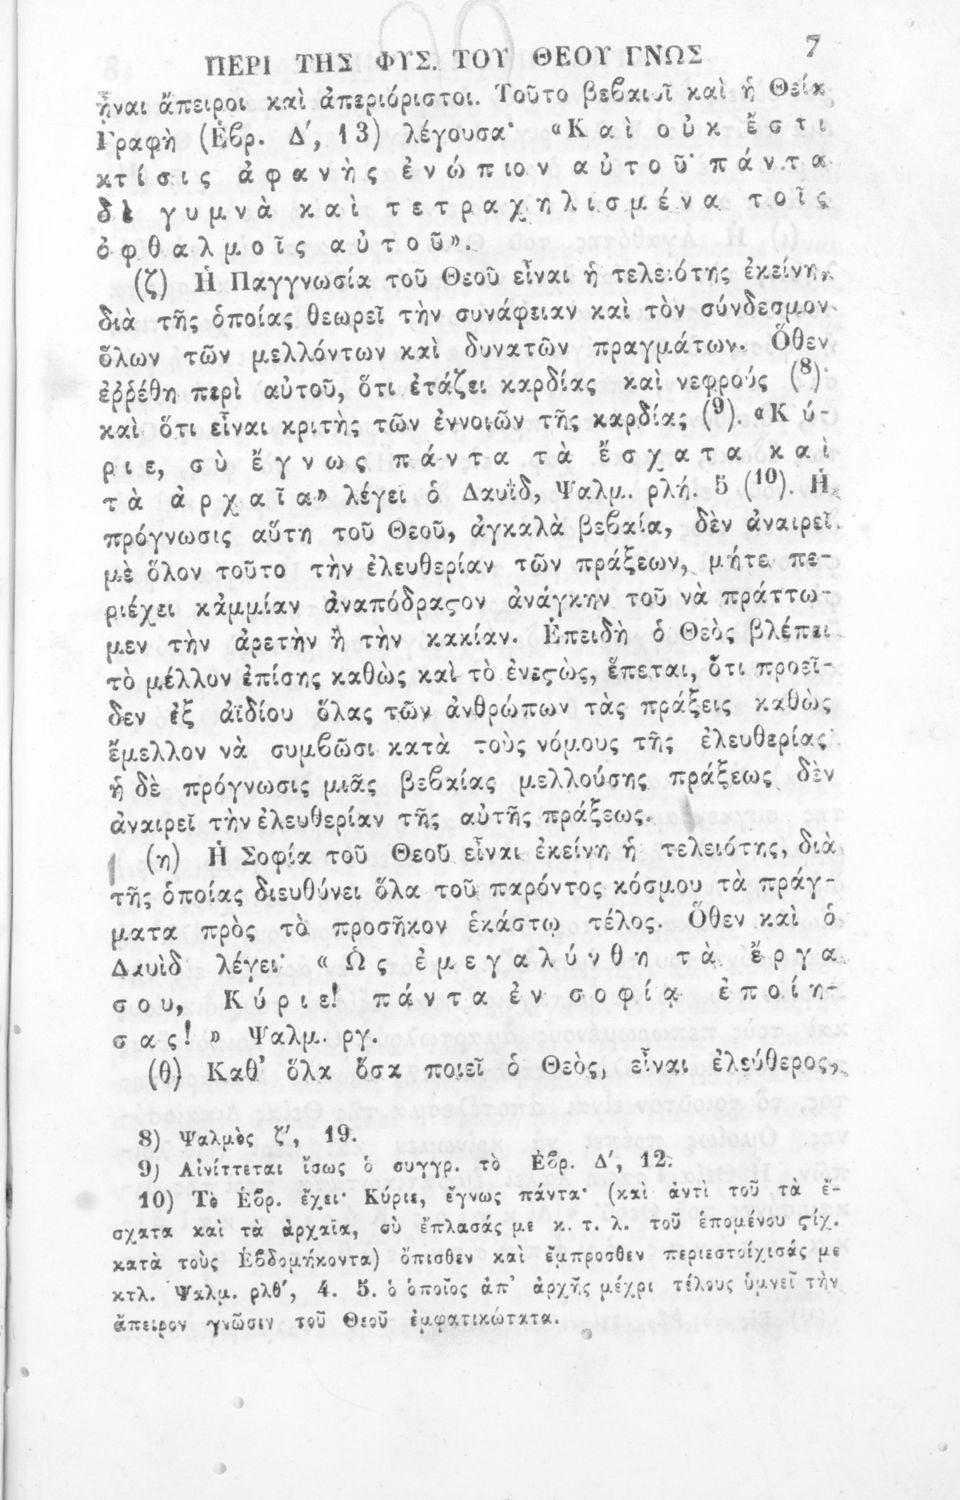 ΠΕΡΙ ΤΗΣ ΦΥΣ. ΤΟΥ ΘΕΟΥ ΓΝΩΣ 7
ἦναι ἄπειροι καὶ ἀπεριόριστοι. Τοῦτο βεβαιοῖ καὶ ἡ Θεία
Γραφὴ (Ἑβρ. Δ', 13) λέγουσα· «Κ α ὶ ο ὐ κ ἔ σ τ ι
κ τ ί σ ι ς ἀ φ α ν ὴ ς ἐ ν ώ π ιο ν α ὐ τ ο ῦ· π ά ν τ α
δ ὲ γ υ μ ν ὰ κ α ὶ τ ε τ ρ α χ η λ ι σ μ έ ν α τ ο ῖ ς
ὀ φ θ α λ μ ο ῖ ς α ὐ τ ο ῦ».
(ζ) Ἡ Παγγνωσία τοῦ Θεοῦ εἶναι ἡ τελειότης ἐκείνη,
διὰ τῆς ὁποίας θεωρεῖ τὴν συνάφειαν καὶ τὸν σύνδεσμον
ὅλων τῶν μελλόντων καὶ δυνατῶν πραγμάτων. Ὅθεν
ἐῤῥέθη περὶ αὐτοῦ, ὅτι ἐτάζει καρδίας καὶ νεφρούς (8)·
καὶ ὅτι εἶναι κριτὴς τῶν ἐννοιῶν τῆς καρδίας (9). «Κ ύ-
ρ ι ε, σ ὺ ἔ γ ν ω ς π ά ν τ α τ ὰ ἔ σ χ α τ α κ α ὶ
τ ὰ ἀ ρ χ α ῖ α» λέγει ὁ Δαυῒδ, Ψαλμ. ρλή. 5 (10). Ἡ
πρόγνωσις αὕτη τοῦ Θεοῦ, ἀγκαλὰ βεβαία, δὲν ἀναιρεῖ
μὲ ὅλον τοῦτο τὴν ἐλευθερίαν τῶν πράξεων, μήτε πε-
ριέχει κἀμμίαν ἀναπόδραϛον ἀνάγκην τοῦ νὰ πράττω-
μεν τὴν ἀρετὴν ἢ τὴν κακίαν. Ἐπειδὴ ὁ Θεὸς βλέπει
τὸ μέλλον ἐπίσης καθὼς καὶ τὸ ἐνεϛὼς, ἕπεται, ὅτι προεῖ-
δεν ἐξ ἀϊδίου ὅλας τῶν ἀνθρώπων τὰς πράξεις καθὼς
ἔμελλον νὰ συμβῶσι κατὰ τοὺς νόμους τῆς ἐλευθερίας·
ἡ δὲ πρόγνωσις μιᾶς βεβαίας μελλούσης πράξεως δὲν
ἀναιρεῖ τὴν ἐλευθερίαν τῆς αὐτῆς πράξεως.
(η) Ἡ Σοφία τοῦ Θεοῦ εἶναι ἐκείνη ἡ τελειότης, διὰ
τῆς ὁποίας διευθύνει ὅλα τοῦ παρόντος κόσμου τὰ πράγ-
ματα πρὸς τὸ προσῆκον ἑκάστῳ τέλος. Ὅθεν καὶ ὁ
Δαυῒδ λέγει· « Ὡ ς ἐ μ ε γ α λ ύ ν θ η τ ὰ ἔ ρ γ α
σ ο υ, Κ ύ ρ ι ε! π ά ν τ α ἐ ν σ ο φ ί ᾳ ἐ π ο ί η-
σ α ς! » Ψαλμ. ργ.
(θ) Καθ' ὅλα ὅσα ποιεῖ ὁ Θεὸς, εἶναι ἐλεύθερος,
8) Ψαλμὸς ζ', 19.
9) Αἰνίττεται ἴσως ὁ συγγρ. τὸ Ἑβρ. Δ', 12.
10) Τὸ Ἑβρ. ἔχει· Κύριε, ἔγνως πάντα· (καὶ ἀντὶ τοῦ τὰ ἔ-
σχατα καὶ τὰ ἀρχαῖα, σὺ ἔπλασάς με κ. τ. λ. τοῦ ἑπομένου ϛίχ.
κατὰ τοὺς Ἑβδομήκοντα) ὄπισθεν καὶ ἔμπροσθεν περιεστοίχισάς με
κτλ. Ψαλμ. ρλθ', 4. 5. ὁ ὁποῖος ἀπ' ἀρχῆς μέχρι τέλους ὑμνεῖ τὴν
ἄπειρον γνῶσιν τοῦ Θεοῦ ἐμφατικώτατα.